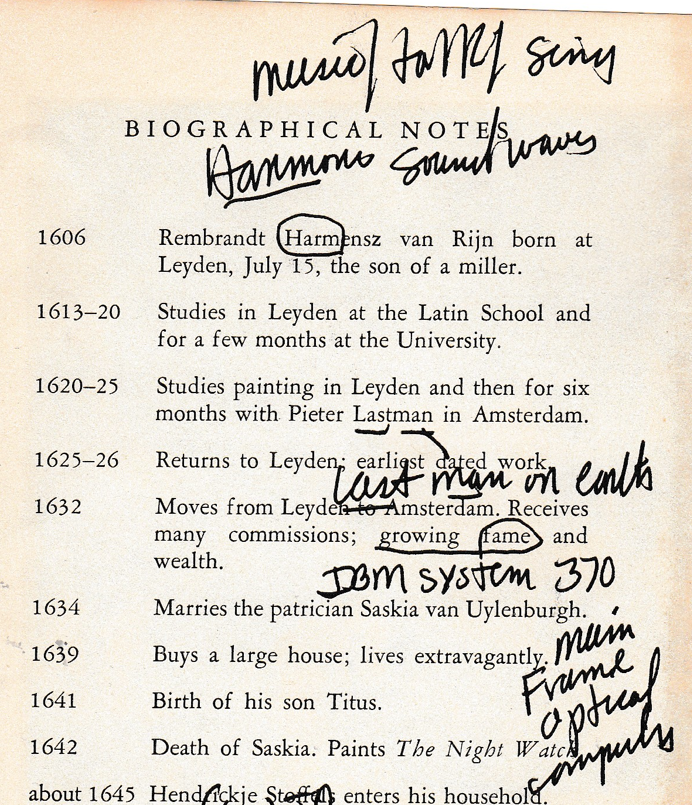 music/ talk/ sing
BIOGRAPHICAL NOTES
Harmons sound waves
1606 Rembrandt Harmensz van Rijn born at
Leyden, July 15, the son of a miller.
1613–20 Studies in Leyden at the Latin School and
for a few months at the University.
1620–25 Studies painting in Leyden and then for six
months with Pieter Lastman in Amsterdam.
1625–26 Returns to Leyden; earliest dated work.
Last man on earth
1632 Moves from Leyden to Amsterdam. Receives
many commissions; growing fame and
wealth.
IBM system 370
1634 Marries the patrician Saskia van Uylenburgh.
main
1639 Buys a large house; lives extravagantly.
Frame
1641 Birth of his son Titus.
optical
1642 Death of Saskia. Paints The Night Watch.
computers
about 1645 Hendrickje Stoffels enters his household.